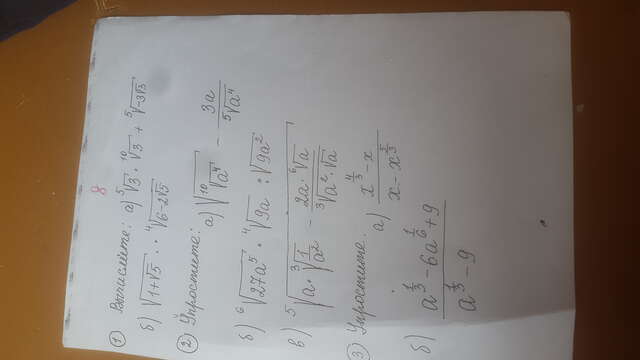 8
① Вычислите: а) ⁵√3 · ¹⁰√3 + ⁵√(-3√3)
б) √(1+√5) · ⁴√(6-2√5)
② Упростите:
а) √(¹⁰√(a⁴)) - 3a/⁵√(a⁴)
б) ⁶√(27a⁵) · ⁴√(9a) : √(9a²)
в) ⁵√(a · ³√(1/a²)) - (2a · ⁶√a)/(³√(a² · √a))
③ Упростите.
а) (x^(4/3) - x)/(x - x^(5/3))
б) (a^(1/3) - 6a^(1/6) + 9)/(a^(1/3) - 9)